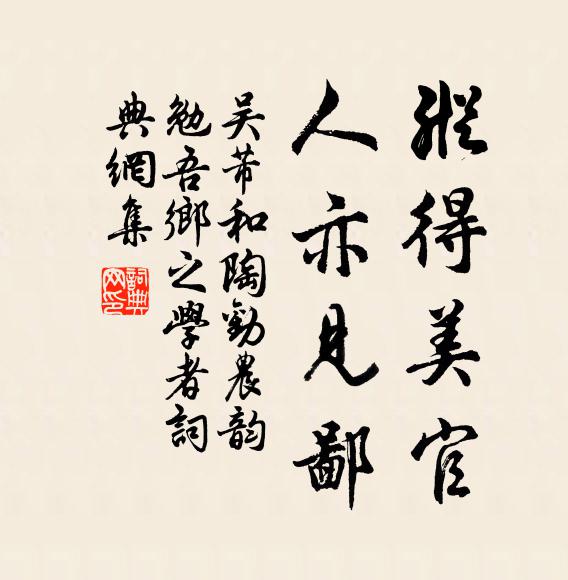 縱得美官
人亦見鄙
吴芾和陶勸農韵
勉吾鄉之學者詞
典網集
詞典
网印